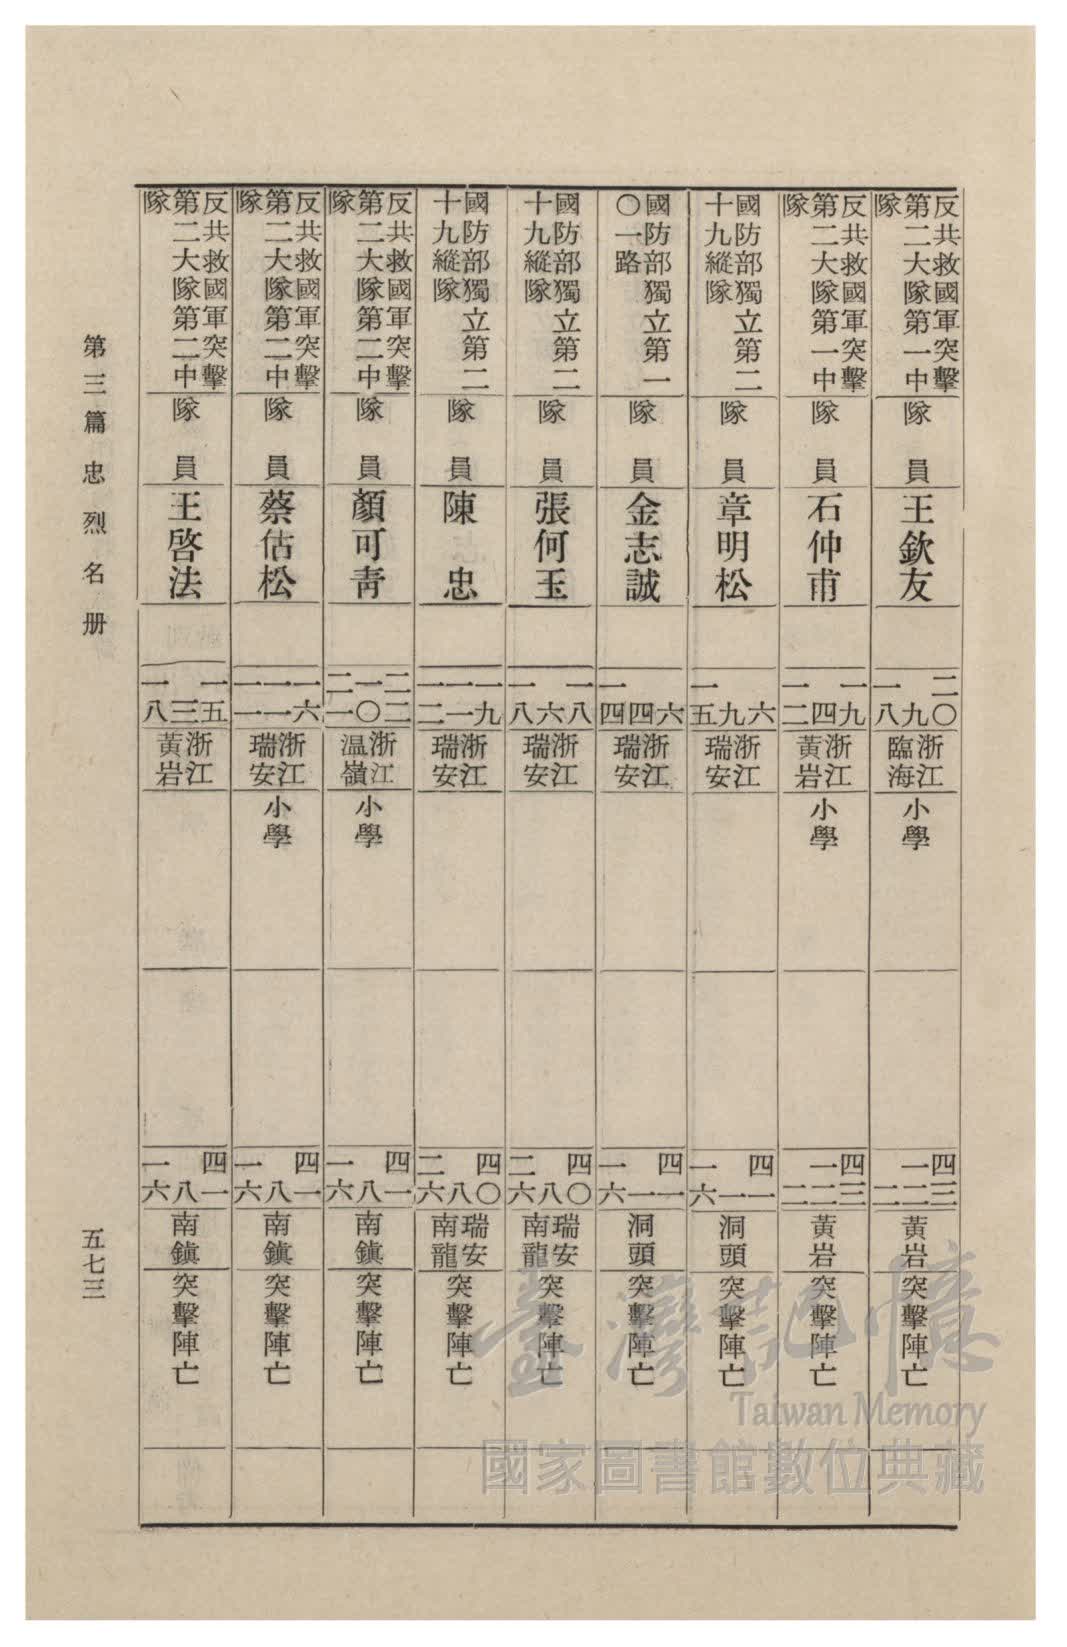 反共救國軍突擊
第二大隊第一中
隊
隊員
王欽友
二〇
九
一八
浙江
臨海
小學
四三
一二
二
黃岩
突擊陣亡
反共救國軍突擊
第二大隊第一中
隊
隊員
石仲甫
一九
四
一二
浙江
黃岩
小學
四三
一二
二
黃岩
突擊陣亡
國防部獨立第二
十九縱隊
隊員
章明松
六
九
一五
浙江
瑞安
四一
一
一六
洞頭
突擊陣亡
國防部獨立第一
〇一路
隊員
金志誠
六
四
一四
浙江
瑞安
四一
一
一六
洞頭
突擊陣亡
國防部獨立第二
十九縱隊
隊員
張何玉
一八
六
一八
浙江
瑞安
四〇
八
二六
瑞安
南龍
突擊陣亡
國防部獨立第二
十九縱隊
隊員
陳忠
一九
一一
一二
浙江
瑞安
四〇
八
二六
瑞安
南龍
突擊陣亡
反共救國軍突擊
第二大隊第二中
隊
隊員
顏可靑
二二
一〇
二一
浙江
溫嶺
小學
四一
八
一六
南鎭
突擊陣亡
反共救國軍突擊
第二大隊第二中
隊
隊員
蔡估松
一六
一一
一一
浙江
瑞安
小學
四一
八
一六
南鎭
突擊陣亡
反共救國軍突擊
第二大隊第二中
隊
隊員
王啓法
一五
三
一八
浙江
黃岩
四一
八
一六
南鎭
突擊陣亡
第三篇忠烈名册
五七三
臺灣記憶
Taiwan Memory
國家圖書館數位典藏